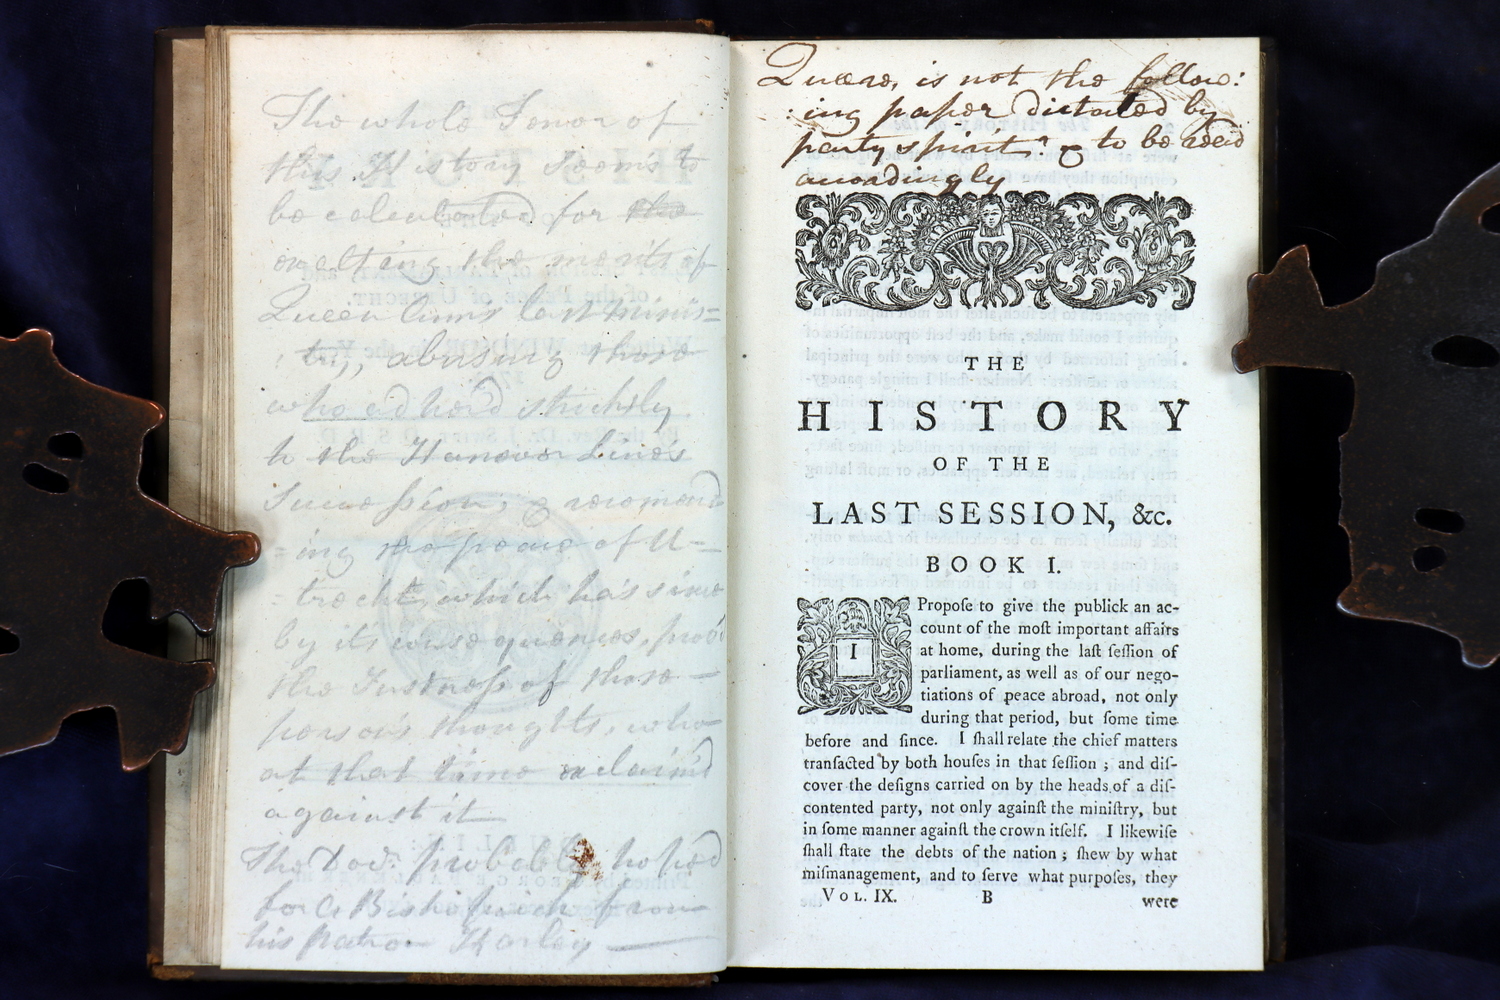 The whole Tenor of
this History seems to
be calculated for the
exalting the merits of
Queen Anns last minis=
:try, abusing those
who adher'd strictly
to the Hanover Line's
Succession, & recomend
=ing the peace of U=
:trecht, which has since
by it's consequences, prov'd
the Justness of those
person's thoughts, who
at that time exclaim'd
against it
The Doc: probably hoped
for a Bishoprick from
his patron Harley
Quære, is not the follow:
:ing paper dictated by
party spirit? & to be read
accordingly
THE
HISTORY
OF THE
LAST SESSION, &c.
BOOK I.
I Propoſe to give the publick an ac-
count of the moſt important affairs
at home, during the laſt ſeſſion of
parliament, as well as of our nego-
tiations of peace abroad, not only
during that period, but ſome time
before and ſince. I ſhall relate the chief matters
tranſacted by both houſes in that ſeſſion ; and diſ-
cover the deſigns carried on by the heads of a diſ-
contented party, not only againſt the miniſtry, but
in ſome manner againſt the crown itſelf. I likewiſe
ſhall ſtate the debts of the nation ; ſhew by what
miſmanagement, and to ſerve what purpoſes, they
VOL. IX. B were